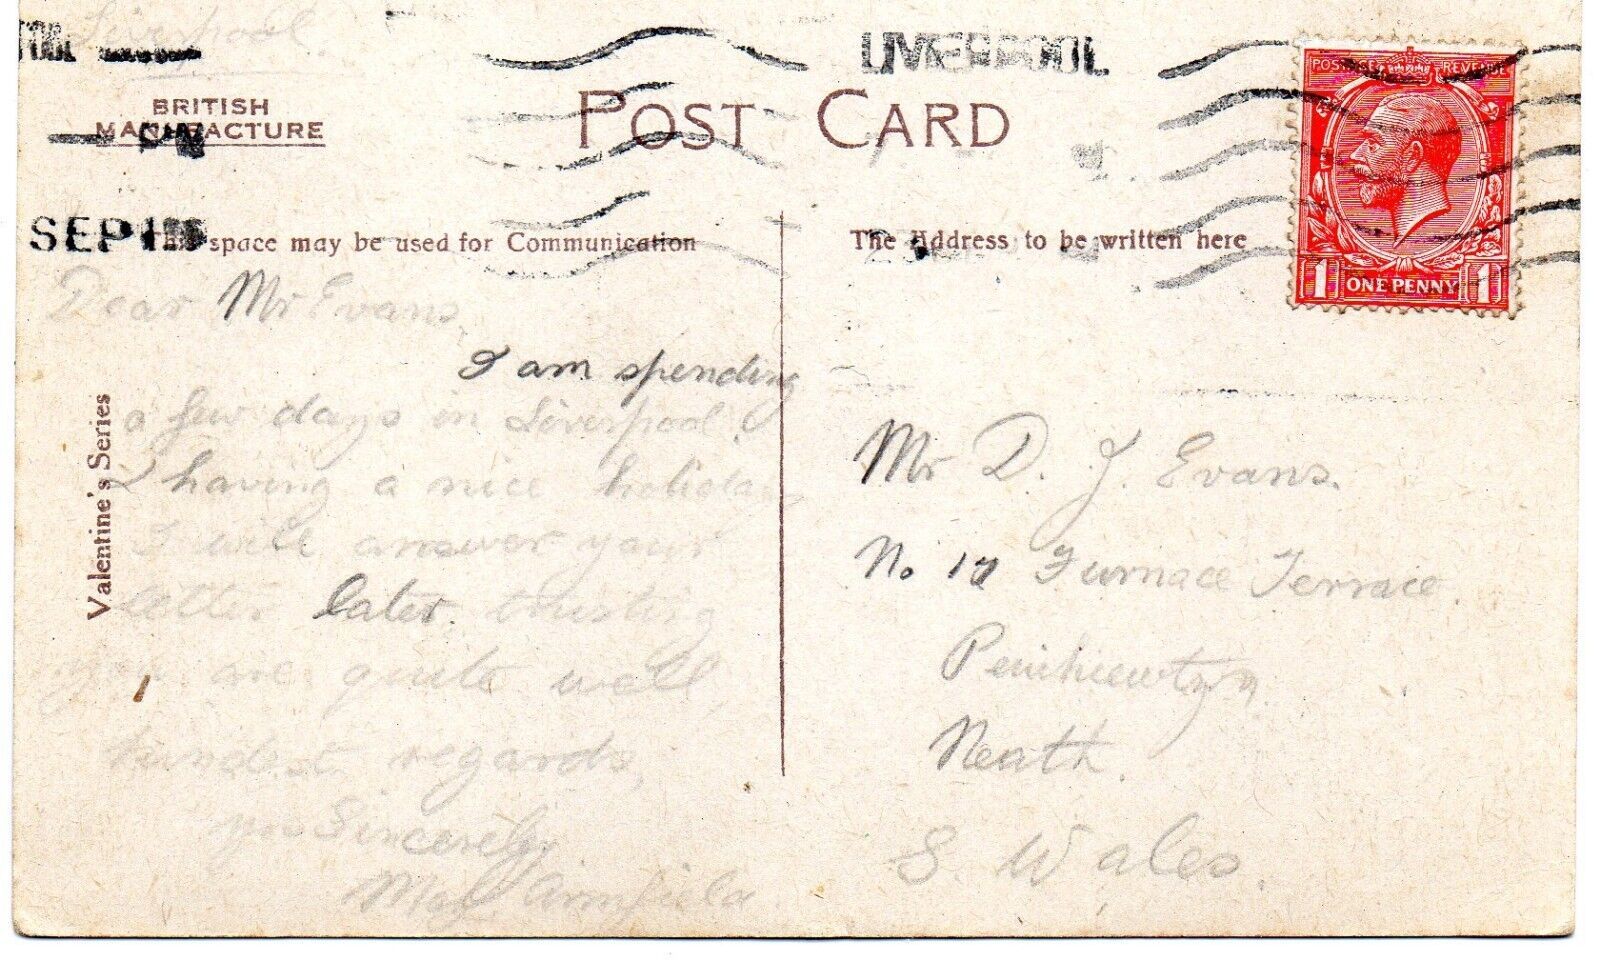 Liverpool.
LIVERPOOL
BRITISH
MANUFACTURE
POST CARD
POSTAGE REVENUE
1 ONE PENNY 1
SEP
This space may be used for Communication
The Address to be written here
Valentine's Series
Dear Mr Evans,
I am spending
a few days in Liverpool
& having a nice holiday
I will answer your
letter later. trusting
you are quite well,
kindest regards,
Sincerely
Armfield
Mr D. J. Evans.
No. Furnace Terrace.
Neath.
S. Wales.